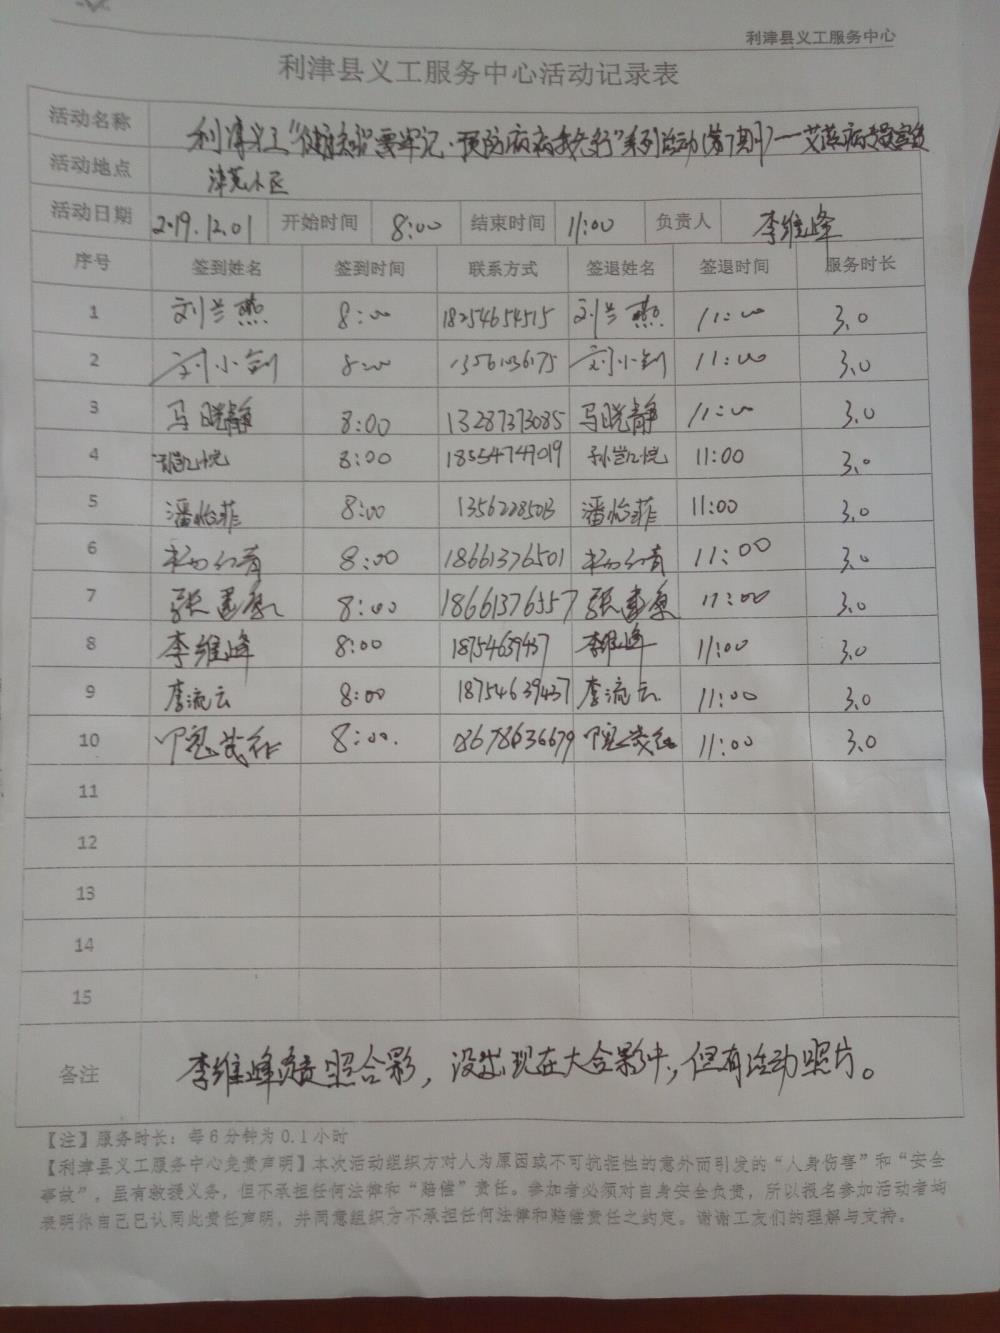 利津县义工服务中心
利津县义工服务中心活动记录表
活动名称 利津义工"健康知识要牢记·预防疾病我先行"系列活动(第7期)一艾滋病
活动地点 津苑小区
活动日期 2019.12.01 开始时间 8:00 结束时间 11:00 负责人 李维峰
序号 签到姓名 签到时间 联系方式 签退姓名 签退时间 服务时长
1 刘兰燕 8:00 18254654515 刘兰燕 11:00 3.0
2 刘小剑 8:00 刘小剑 11:00 3.0
3 马晓静 8:00 13287373085 马晓静 11:00 3.0
4 孙凯悦 8:00 18554747019 孙凯悦 11:00 3.0
5 潘怡菲 8:00 潘怡菲 11:00 3.0
6 8:00 18661376501 11:00 3.0
7 8:00 18661376557 11:00 3.0
8 李维峰 8:00 18754639437 李维峰 11:00 3.0
9 李流云 8:00 18754639437 李流云 11:00 3.0
10 8:00. 18678636679 11:00 3.0
11
12
13
14
15
备注 李维峰负责照合影，没出现在大合影中，但有活动照片。
【注】服务时长：每6分钟为0.1小时
【利津县义工服务中心免责声明】本次活动组织方对人为原因或不可抗拒性的意外而引发的“人身伤害”和“安全
事故”，虽有救援义务，但不承担任何法律和“赔偿”责任。参加者必须对自身安全负责，所以报名参加活动者均
表明你自己已认同此责任声明，并同意组织方不承担任何法律和赔偿责任之约定。谢谢工友们的理解与支持。